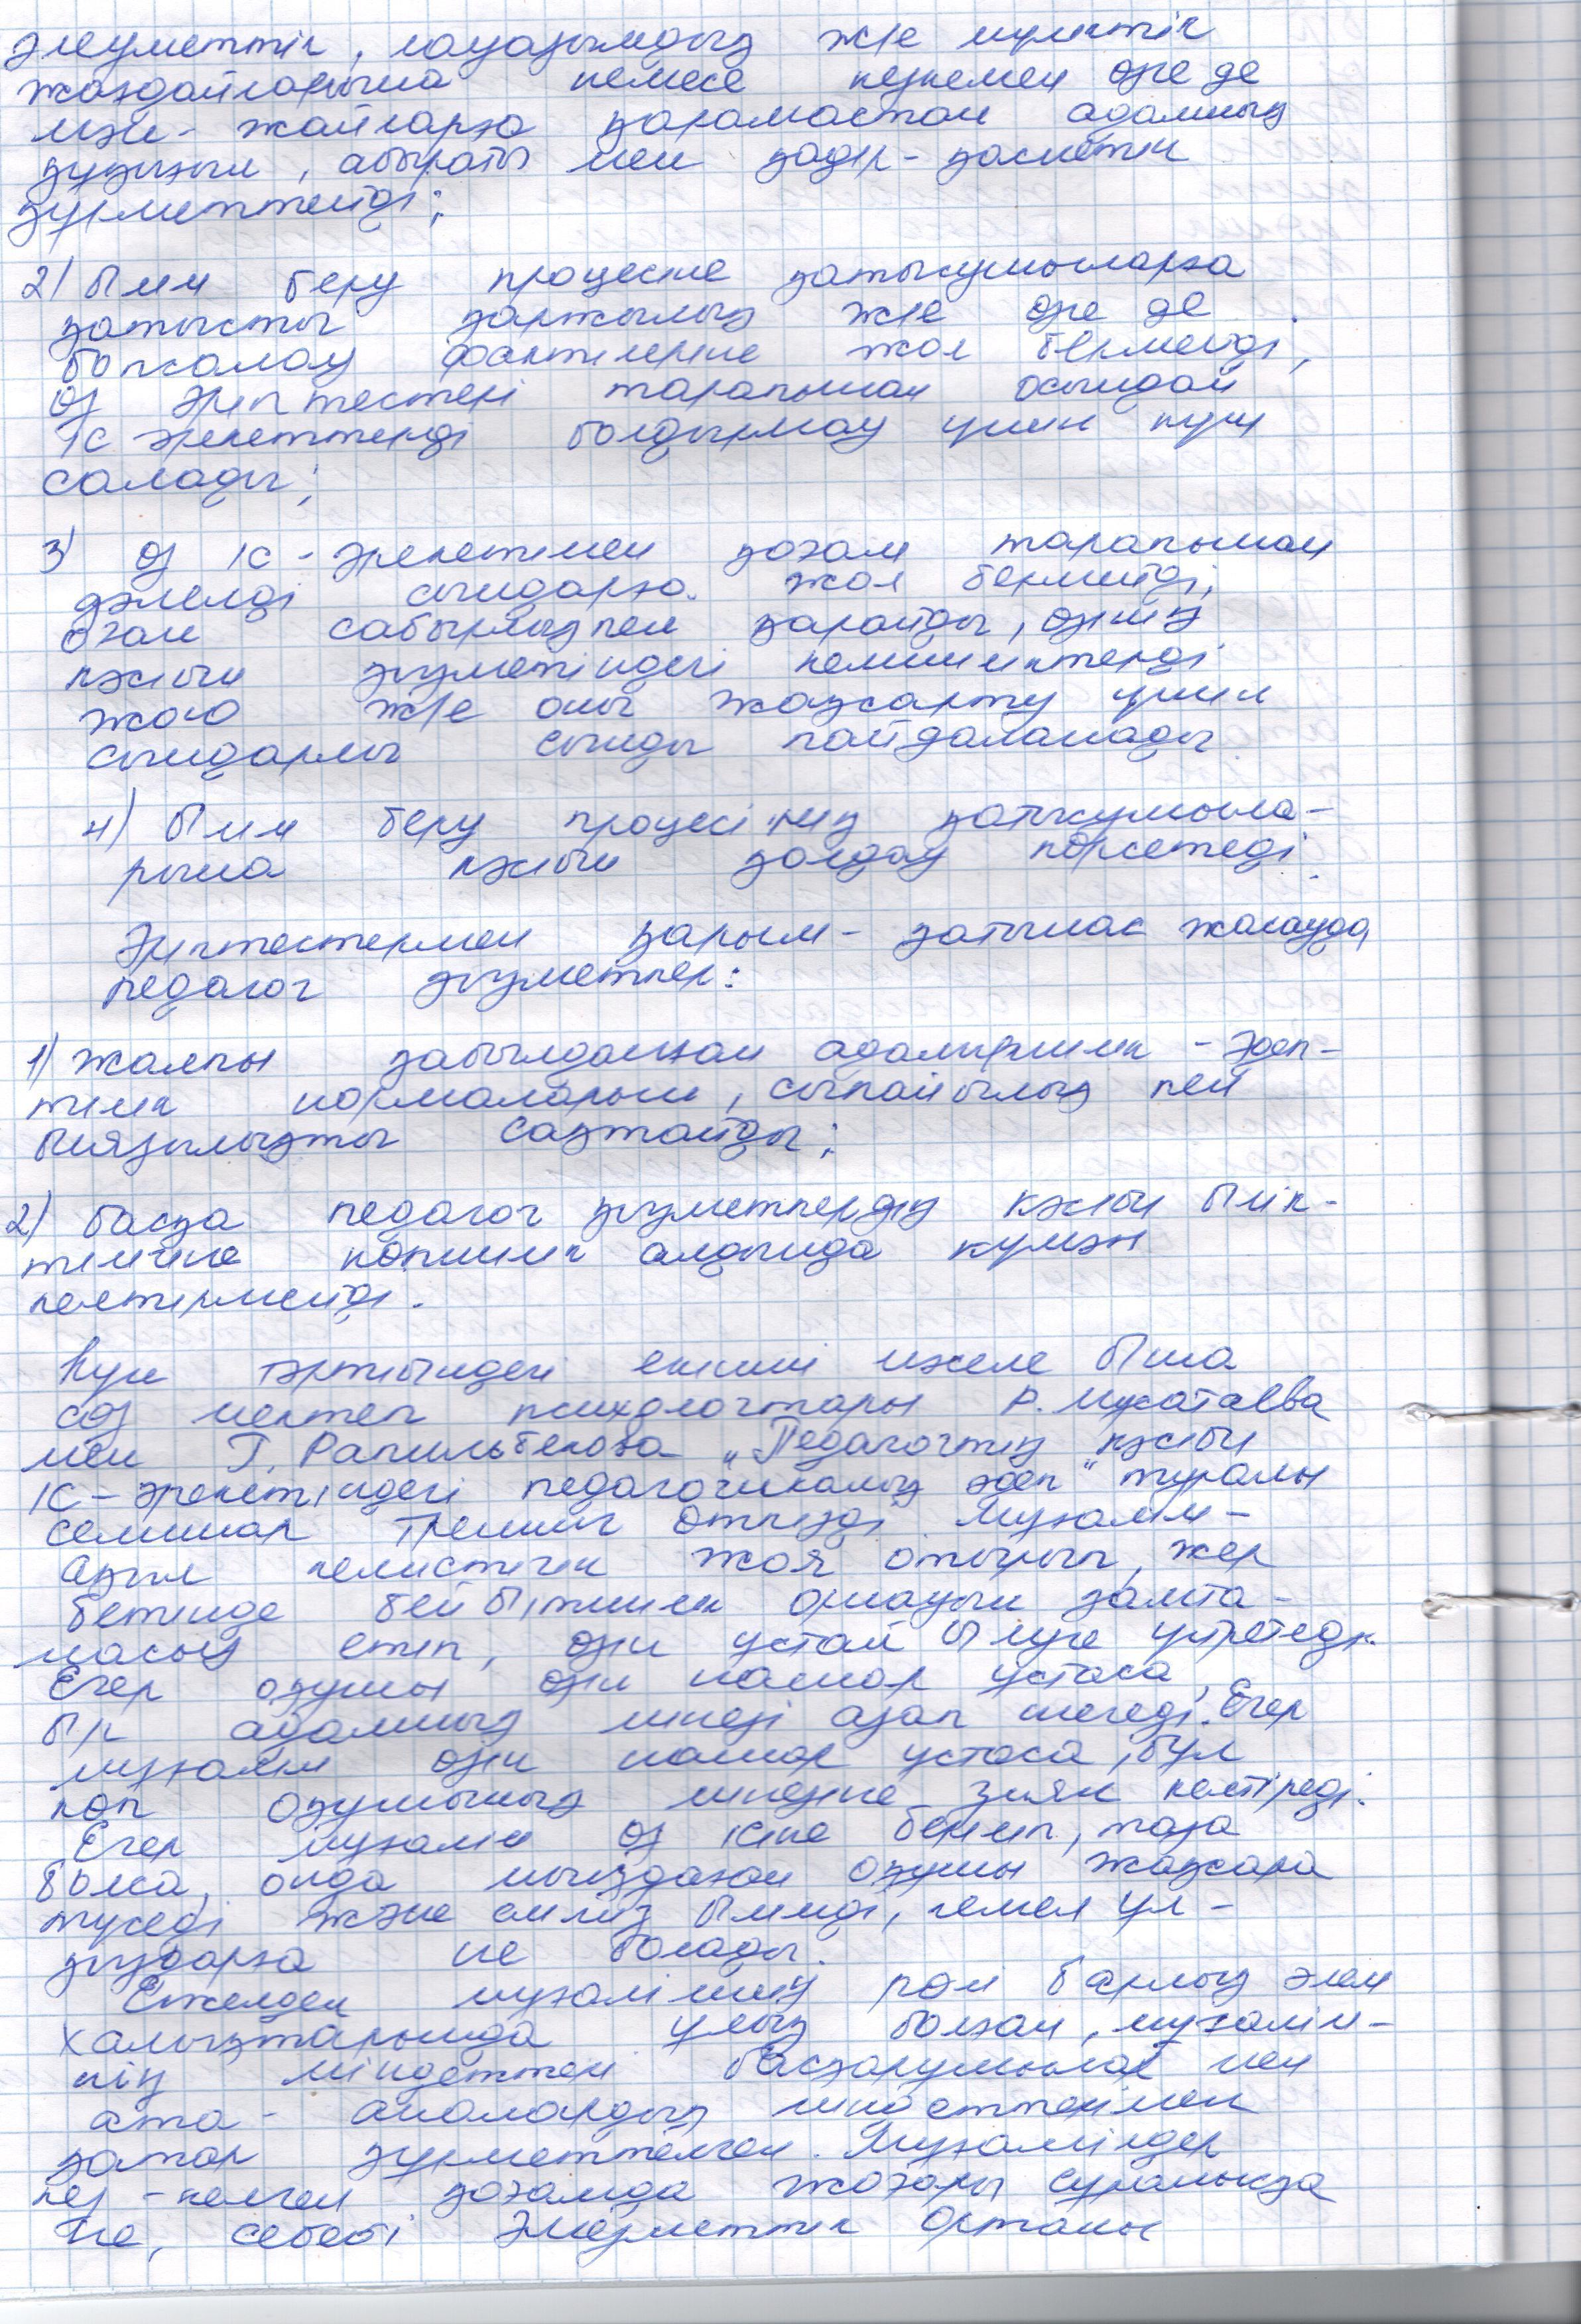 әлеуметтік, лауазымдық ж/е мүліктік
жағдайларына немесе кезкелген өзге де
мән-жайларға қарамастан адамның
құқығын, абыройы мен қадір-қасиетін
құрметтейді;
2) Білім беру процесіне қатысушыларға
қатысты қаржылық ж/е өзге де
бопсалау фактілеріне жол бермейді,
өз әріптестері тарапынан осындай
іс әрекеттерді болдырмау үшін күш
салады;
3) өз іс-әрекетімен қоғам тарапынан
дәлелді сындарға жол бермейді,
оған сабырлықпен қарайды, өзінің
кәсіби қызметіндегі кемшіліктерді
жою ж/е оны жақсарту үшін
сындарлы сынды пайдаланады
4) Білім беру процесінің қатысушыла-
рына кәсіби қолдау көрсетеді.
Әріптестермен қарым-қатынас жасауда
педагог қызметкер:
1) жалпы қабылданған адамгершілік-әдеп-
тілік нормаларын, сыпайылық пен
биязылықты сақтайды;
2) басқа педагог қызметкердің кәсіби білік-
тілігіне көпшілік алдында күмән
келтірмейді.
Күн тәртібіндегі екінші мәселе б/ша
сөз мектеп психологтары Р. Мусатаева
мен Г. Рапильбекова „Педагогтің кәсіби
іс-әрекетіндегі педагогикалық әдеп" туралы
семинар тренинг өткізді. Мұғалім-
ақыл келістігін жоя отырып, жер
бетінде бейбітшілік орнауын қамта-
масыз етіп, өзін ұстай білуге үйретеді.
Егер оқушы өзін нашар ұстаса,
бір адамның мінезі азап шегеді. Егер
мұғалім өзін нашар ұстаса, бұл
көп оқушының мінезіне зиян келтіреді.
Егер мұғалім өз ісіне берілген, таза
болса, онда нығыздаған оқушы жақсара
түседі және білімді, кемел ұл-
қыздарға ие болады.
Ежелден мұғалімнің рөлі барлық әлем
халықтарында ұлық болған, мұғалім-
нің міндеттері басқарушылар мен
ата-аналардың міндеттерімен
қатар құрметтелген. Мұғалімдер
кез-келген қоғамда жоғары сұранысқа
ие, себебі әлеуметтік ортаны